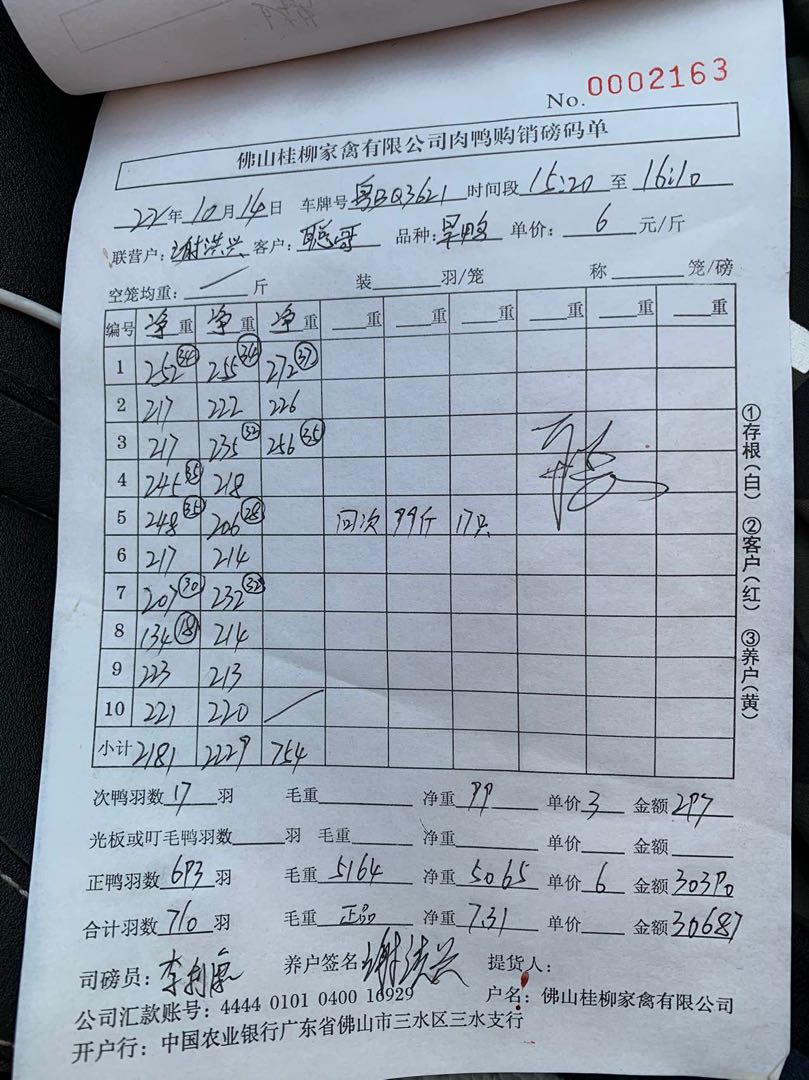 No. 0002163
佛山桂柳家禽有限公司肉鸭购销磅码单
22年10月14日 车牌号 粤BQ3621 时间段 15:20 至 16:10
联营户：谢洪兴 客户：聪哥 品种：旱鸭 单价：6 元/斤
空笼均重：/ 斤 装 羽/笼 称 笼/磅
编号 净重 净重 净重 重 重 重 重 重 重
1 252 34 255 34 272 37
2 217 222 226
3 217 235 32 256 35
4 245 35 218
5 248 35 206 28 回次 99斤 17只
6 217 214
7 207 30 232 32
8 134 18 214
9 223 213
10 221 220 /
小计 2181 2229 754
①存根（白） ②客户（红） ③养户（黄）
次鸭羽数 17 羽 毛重 净重 99 单价 3 金额 297
光板或叮毛鸭羽数 羽 毛重 净重 单价 金额
正鸭羽数 693 羽 毛重 5164 净重 5065 单价 6 金额 30390
合计羽数 710 羽 毛重 正品 净重 7.31 单价 金额 30687
司磅员：李利 养户签名 谢洪兴 提货人：
公司汇款账号：4444 0101 0400 16929 户名：佛山桂柳家禽有限公司
开户行：中国农业银行广东省佛山市三水区三水支行